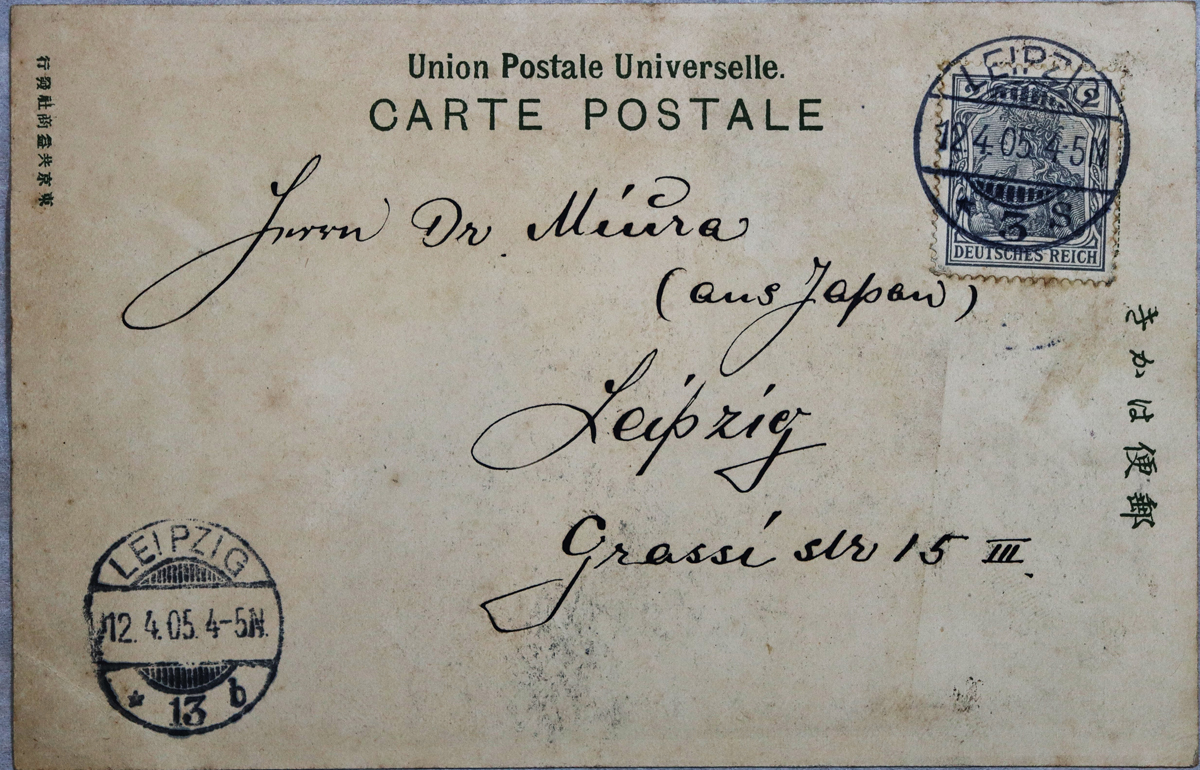 Union Postale Universelle.
CARTE POSTALE
LEIPZIG 2
12.4.05.4-5N
* 3 S
DEUTSCHES REICH
Herrn Dr Miura
(aus Japan)
Leipzig
Grassi str 15 III.
LEIPZIG
12.4.05.4-5N.
* 13 b
東京共益商社發行
郵便はかき